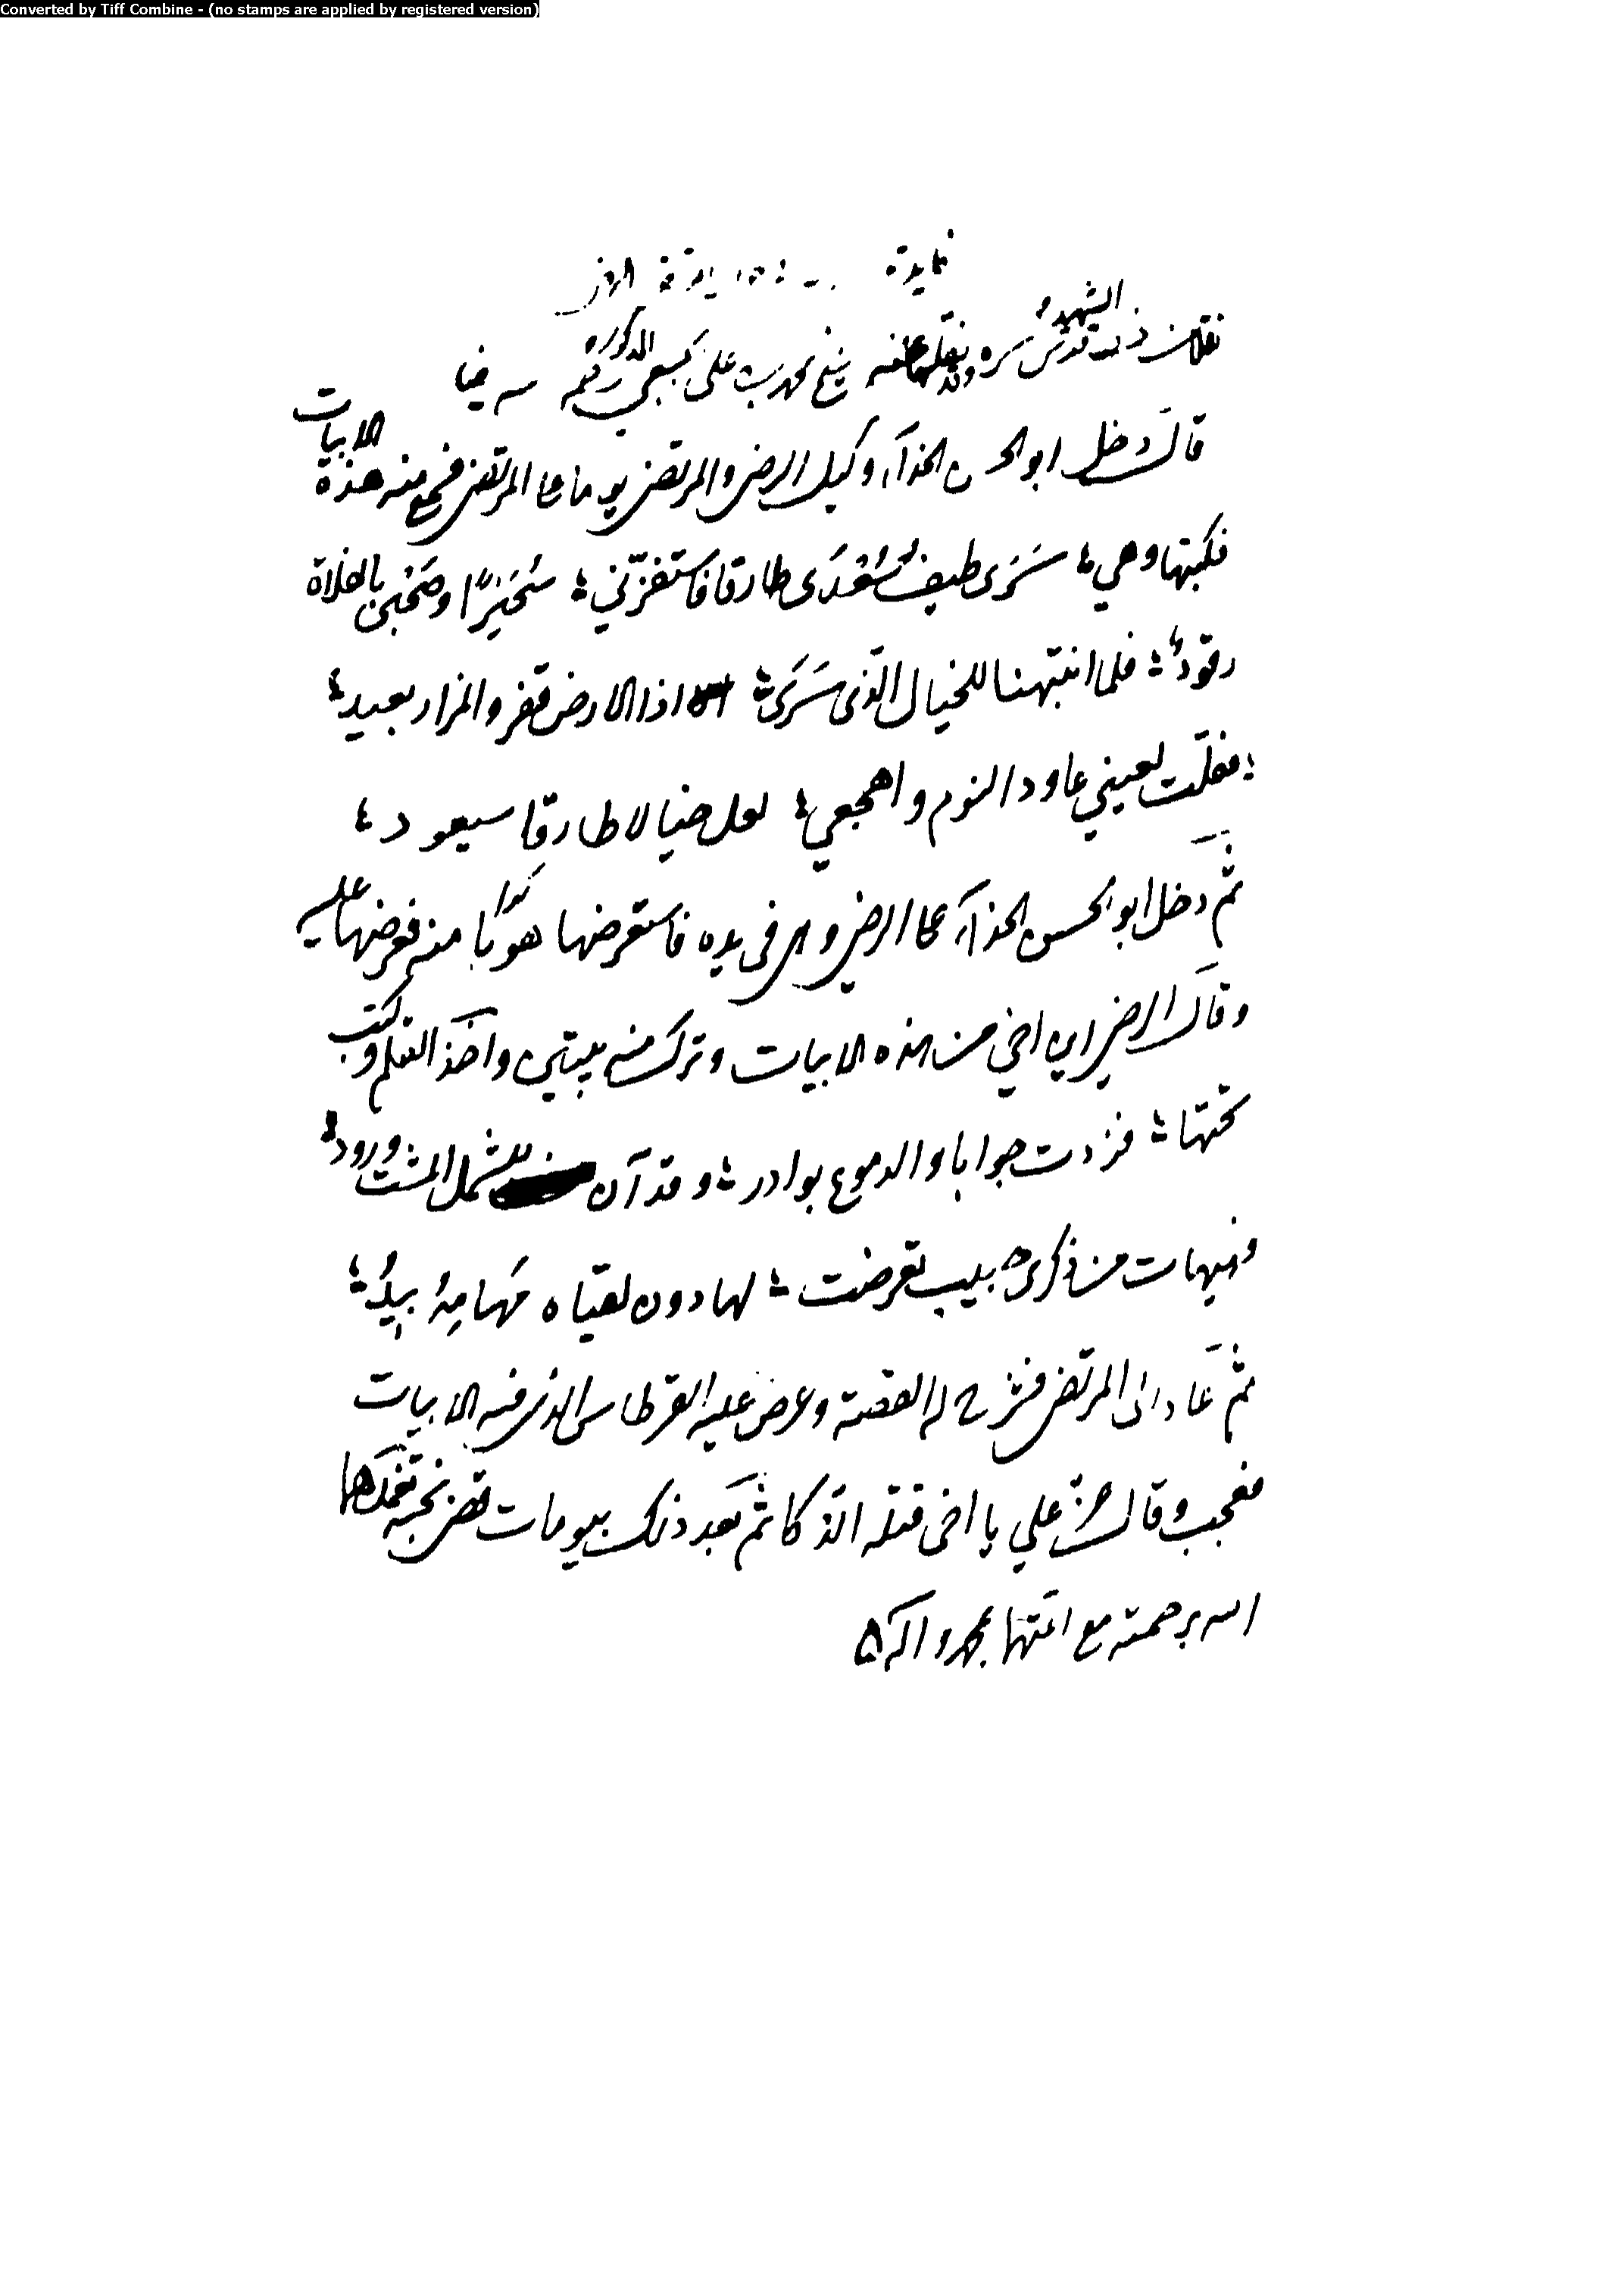 Converted by Tiff Combine - (no stamps are applied by registered version)
فايدة
الشهيد قدس سره شيخ محمد بن علي
قال دخل ابو الحسن الحذآء وكيل الرضي والمرتضى يوما على المرتضى فسمع منه هذة الابيات
فكتبها وهي ؛ سَرَى طيف سُعْدَى طارقا فاستفزّني ؛ سُحَيْرًا وصَحْبي بالفلاة
رقودُ ؛ فلما انتبهنا للخيال الّذى سَرَى ؛ اذا الارض قفر والمزار بعيد ؛
؛ فقلت لعيني عاود النوم واهجعي ؛ لعل خيالا طارقا سيعود ؛
ثمّ دخل ابو الحسن الحذآء على الرضي وهي في يده فاستعرضها منه فعرضها عليه
وقال الرضي اين اخي من هذه الابيات وترك منه بيتين واخذ القلم وكتب
تحتها ؛ فردت جوابا والدموع بوادر ؛ وقد آن للشمل المشت ورود ؛
فهيهات من ذكرى حبيب تعرضت ؛ لها دون لقياه مَهامِهُ بيدُ ؛
ثمّ عاد الى المرتضى فشرح له القصة وعرض عليه القرطاس الذي فيه الابيات
فعجب وقال عزّ علي يا اخي قتله الذكا ثمّ بعد ذلك بيومات قضى نحبه تغمدها
الله برحمته مع ائمتها بمحمد واله